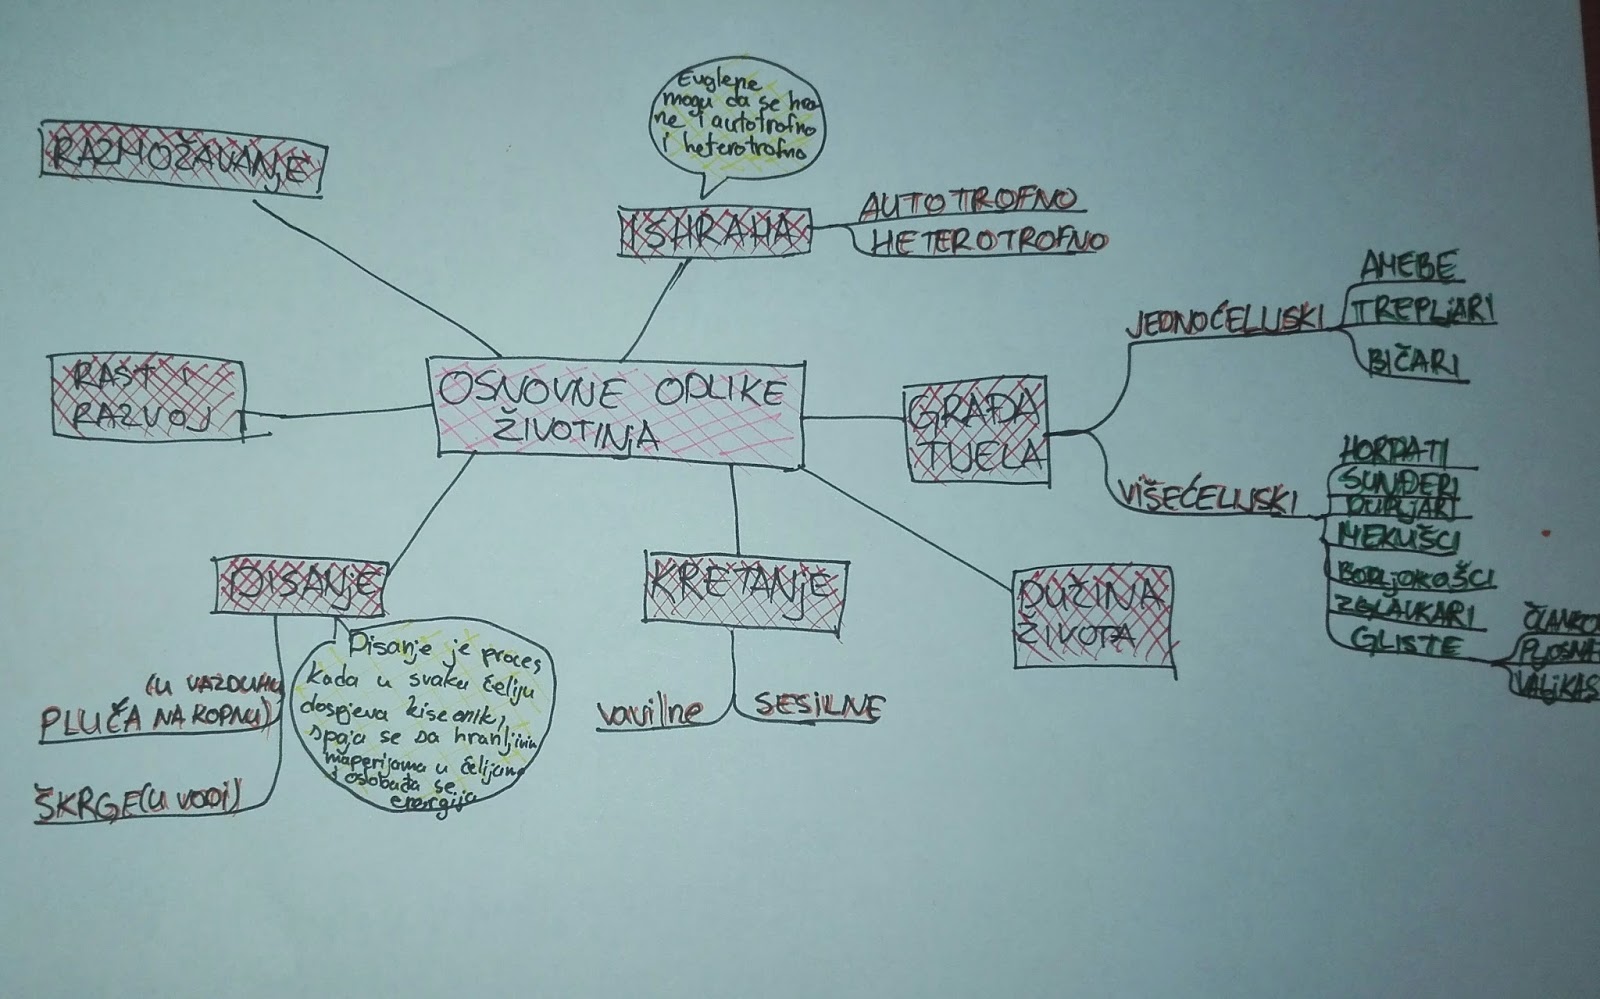 Euglene
mogu da se hra
ne i autotrofno
i heterotrofno
RAZMOŽAVANJE
ISHRANA
AUTOTROFNO
HETEROTROFNO
OSNOVNE ODLIKE
ŽIVOTINJA
RAST I
RAZVOJ
GRAĐA
TIJELA
JEDNOĆELIJSKI
AMEBE
TREPLJARI
BIČARI
VIŠEĆELIJSKI
HORDATI
SUNĐERI
DUPLJARI
MEKUŠCI
BODLJOKOŠCI
ZGLAVKARI
GLISTE
ČLANKO
PLJOSNA
VALJKAS
DISANJE
(U VAZDUHU
PLUČA NA KOPNU)
ŠKRGE (U VODI)
Disanje je proces
kada u svaku ćeliju
dospjeva kiseonik,
spaja se sa hranljivim
materijama u ćelijama
i oslobađa se
energija
KRETANJE
vavilne
SESILNE
DUŽINA
ŽIVOTA